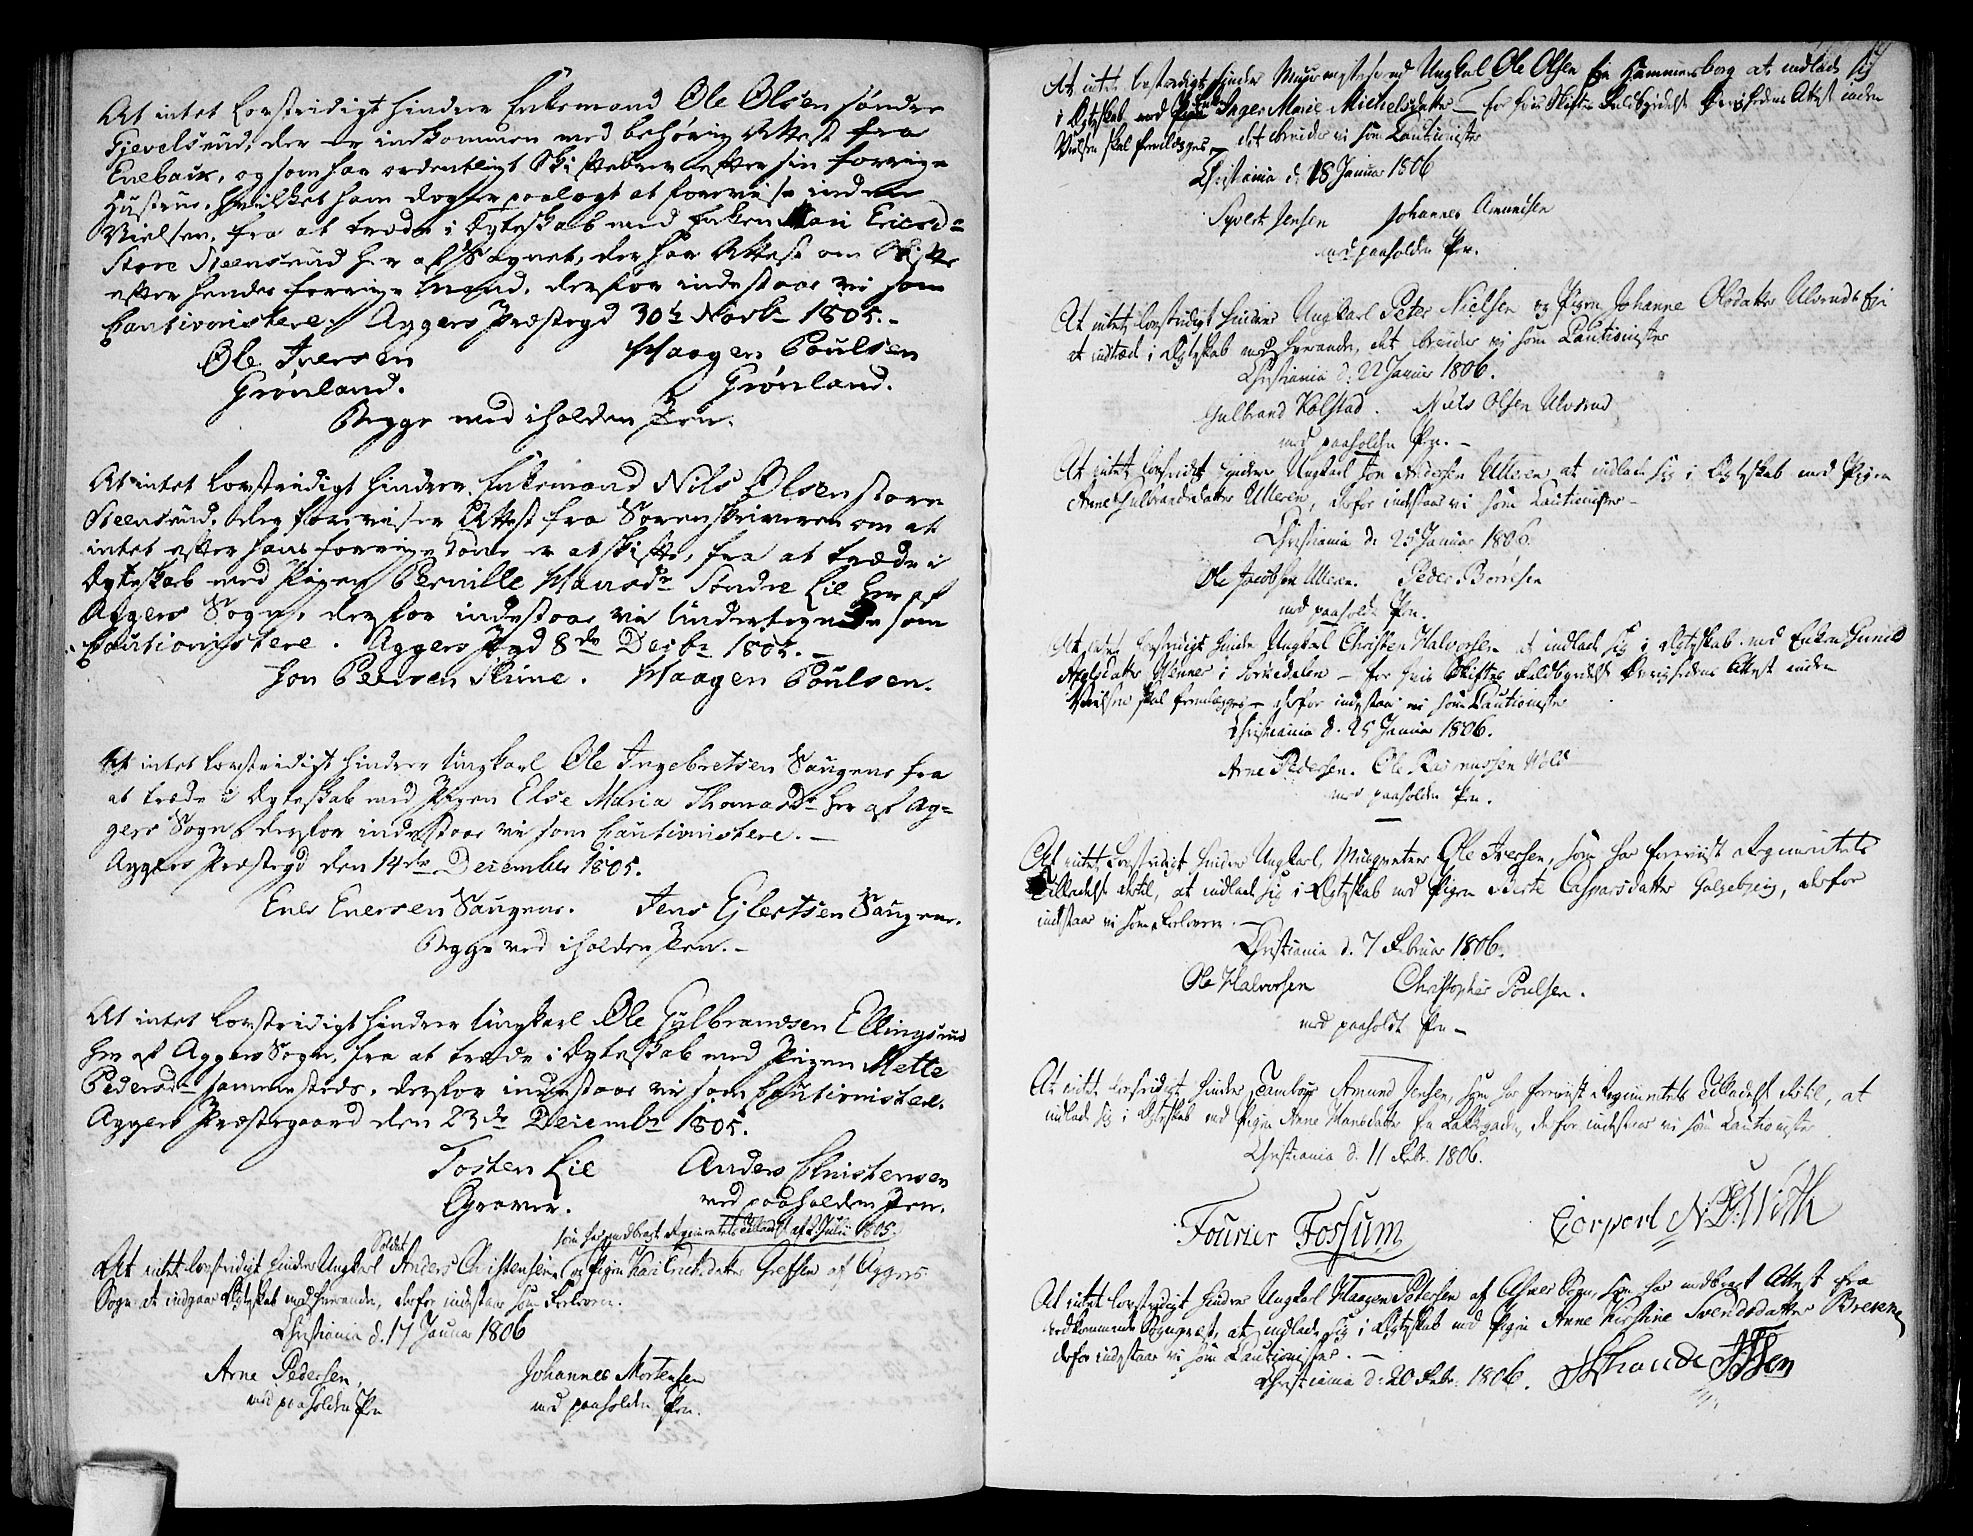 At intet lovstridigt hindrer Enkemand Ole Olsen søndre
Gievelsrud, der er indkommen med behørig Attest fra
Enebak, og som har ordentligt Skiftebrev efter sin forrige
Hustrue, hvilket ham dog er paalagt at forevise inden
Vielsen, fra at træde i Ægteskab med Enken Mari Ericsdr
Store Steensrud her af Sognet, der har Attest om Skifte
efter hendes forrige Mand, derfor indestaae vi som
Cautionistere. Aggers Præstegd 30te Novbr 1805.-
Ole Iversen Haagen Poulsen
Grønland. Grønland.
Begge med iholden Pen.
At intet lovstridigt hindrer Enkemand Nils Olsen store
Steensrud, der foreviser Attest fra Sorenskriveren om at
intet efter hans forrige Kone er at skifte, fra at træde i
Ægteskab med Pigen Pernille Hansdr Søndre Lie her af
Aggers Sogn, derfor indestaae vi undertegnede som
Cautionistere. Aggers Pgd 8de Decbr 1805.-
Jon Petersen Skime. Haagen Poulsen.
At intet lovstridigt hindrer Ungkarl Ole Ingebretsen Saugene fra
at træde i Ægteskab med Pigen Else Maria Thomasdr her af Ag-
gers Sogn, derfor indestaae vi som Cautionistere.-
Aggers Præstegd den 14de December 1805.
Enes Enersen Saugene. Jens Ejlertsen Saugene.
Begge ved iholden Pen.-
At intet lovstridigt hindrer Ungkarl Ole Gulbrandsen Ellingsrud
her af Aggers Sogn, fra at træde i Ægteskab med Pigen Mette
Pedersdr sammesteds, derfor indestaae vi som Cautionistere.
Aggers Præstegaard den 23de Decembr 1805.
Tosten Lie Anders Christensen
Graver. med paaholden Pen.
Soldat som har indbragt Regimentets Tilladelse af 2 Julii 1805.
At intet lovstridigt hindrer Ungkarl Anders Christensen og Pigen Kari Ericksdatter Grefsen af Aggers
Sogn at indgaae Ægteskab med hverandre, derfor indestaae som Forlovere.
Christiania d. 17 Januar 1806
Arne Pedersen, Johannes Mortensen
med paaholden Pen med paaholden Pen.
At intet lovstridigt hindrer Muurmestersvend Ungkarl Ole Olsen fra Hammersborg at indlade sig
i Ægteskab med Enken Inger Marie Michelsdatter - for hvis Skiftes Fuldbyrdelse Øvrighedens Attest inden
Vielsen skal fremlægges - det bevidner vi som Cautionister
Christiania d. 18 Januar 1806
Syvert Jensen Johannes Amundsen
med paaholden Pen.
At intet lovstridigt hindrer Ungkarl Peter Nielsen og Pigen Johanne Olsdatter Ulvruds Eje
at indtræde i Ægteskab med hverandre, det bevidner vi som Cautionister
Christiania d. 22 Januar 1806.
Gulbrand Kolstad. Niels Olsen Ulvsrud
med paaholden Pen.-
At intet lovstridigt hindrer Ungkarl Jon Andersen Ulleren at indlade sig i Ægteskab med Pigen
Anne Gulbrandsdatter Ulleren, derfor indestaae vi som Cautionister -
Christiania d. 25 Januar 1806.
Ole Jacobsen Ulleren. Peder Børresen
med paaholden Pen.
At intet lovstridigt hindrer Ungkarl Christen Halvorsen at indlade sig i Ægteskab med Enken Gunild
Henner i Sørkedalen - for hvis Skiftes Fuldbyrdelse Øvrighedens Attest inden
Vielsen skal fremlægges - derfor indestaae vi som Cautionister
Christiania d. 25 Januar 1806.
Arne Pedersen. Ole Rasmussen Wold
med paaholden Pen.
At intet lovstridigt hindrer Ungkarl, Musqueteer Ole Iversen, som har foreviist Regimentets
Tilladelse dertil, at indlade sig i Ægteskab med Pigen Berte Casparsdatter Galgebjerg, derfor
indestaae vi som Forlovere.-
Christiania d. 7 Februar 1806.
Ole Halvorsen Christopher Poulsen.
med paaholdt Pen -
At intet lovstridigt hindrer Tambour Amund Jensen, som har foreviist Regimentets Tilladelse dertil, at
indlade sig i Ægteskab med Pigen Anne Hansdatter fra Lakkegaden, derfor indestaae vi som Cautionister
Christiania d. 11 Febr. 1806.
Fourier Fossum Corporl N. With
At intet lovstridigt hindrer Ungkarl Haagen Petersen af Asker Sogn, som har medbragt Attest fra
vedkommende Sognepræst, at indlade sig i Ægteskab med Pigen Anne Kirstine Svendsdatter Brevenn
derfor indestaae vi som Cautionister.-
Christiania d. 20 Febr. 1806.